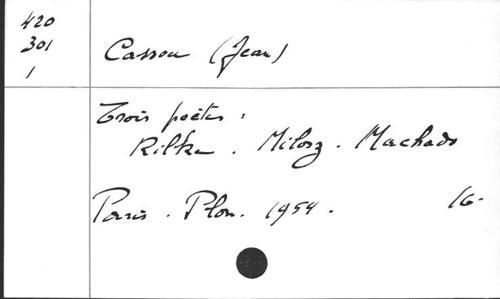 420
301
1
Cassou (Jean)
Trois poètes :
Rilke . Milosz . Machado
Paris . Plon . 1954 .
16.